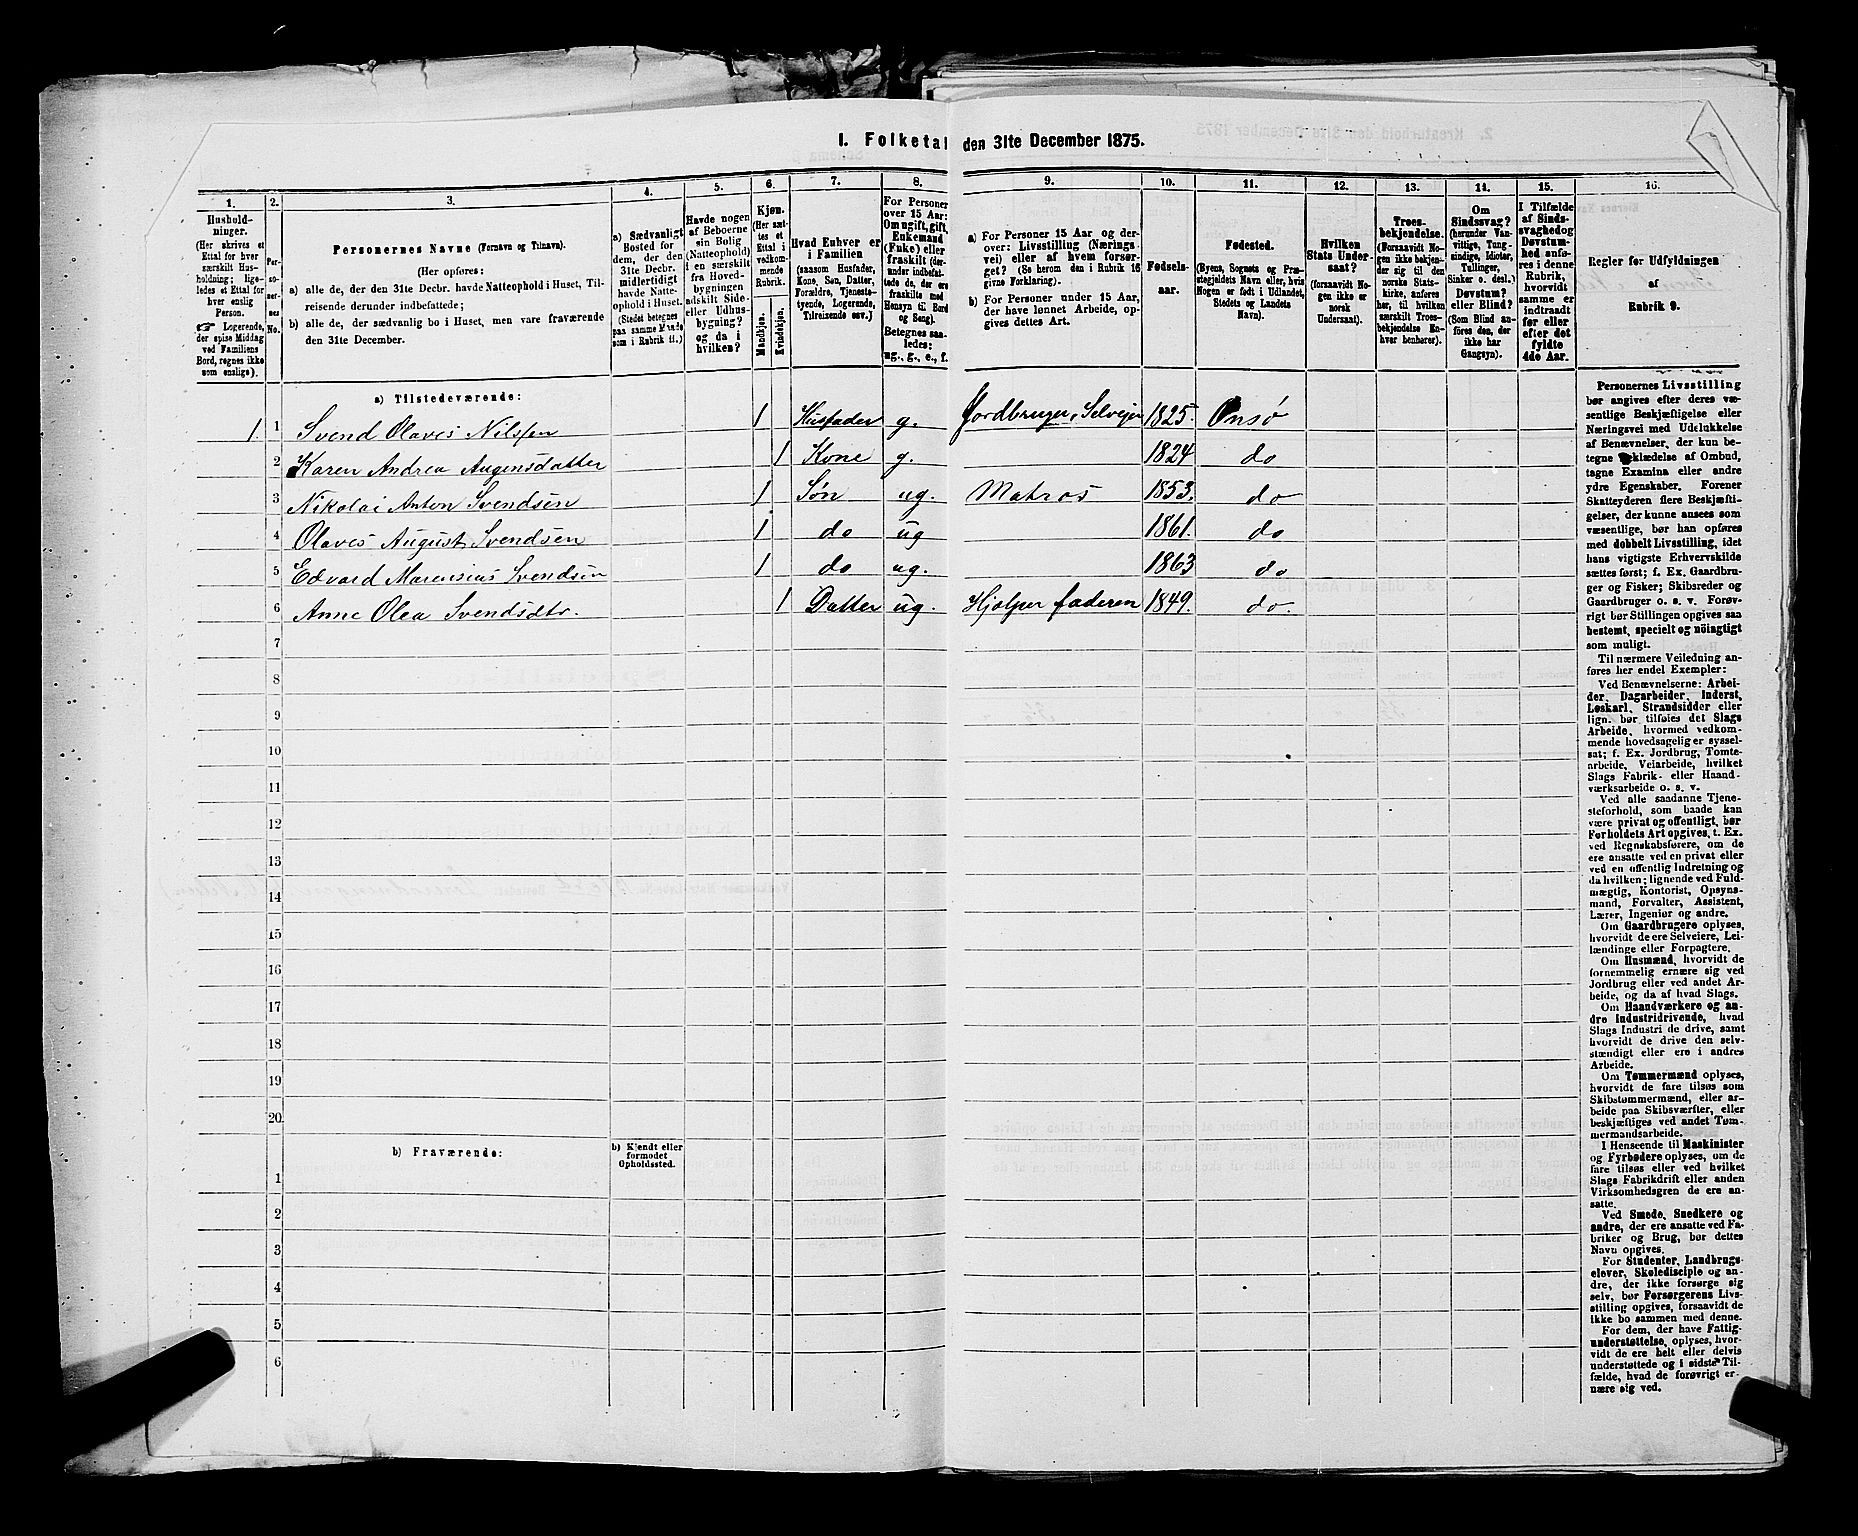 I. Folketal den 31te December 1875.
1. 2. 3. 4. 5. 6. 7. 8. 9. 10. 11. 12. 13. 14. 15. 16.
Hushold-
ninger.
(Her skrives et
Ettal for hver
særskilt Hus-
holdning; lige-
ledes et Ettal for
hver enslig
Person.
☞ Logerende,
der spise Middag
ved Familiens
Bord, regnes ikke
som enslige).
Per-
so-
ner-
nes
No.
Personernes Navne (Fornavn og Tilnavn).
(Her opføres:
a) alle de, der den 31te Decbr. havde Natteophold i Huset, Til-
reisende derunder indbefattede;
b) alle de, der sædvanlig bo i Huset, men vare fraværende
den 31te December.
a) Sædvanligt
Bosted for
dem, der den
31te Decbr.
midlertidigt
havde Natte-
ophold i Huset.
(Stedet betegnes
paa samme Maade
som i Rubrik 11.)
Havde nogen
af Beboerne
sin Bolig
(Natteophold)
i en særskilt
fra Hoved-
bygningen
adskilt Side-
eller Udhus-
bygning?
og da i
hvilken?
Kjøn.
(Her sæt-
tes et
Ettal i
vedkom-
mende
Rubrik.
Mandkjøn.
Kvindekjøn.
Hvad Enhver er
i Familien
(saasom Husfader,
Kone, Søn, Datter,
Forældre, Tjeneste-
tyende, Logerende,
Tilreisende osv.)
For Personer
over 15 Aar:
Om ugift, gift,
Enkemand
(Enke) eller
fraskilt (der-
under indbefat-
tede de, der ere
fraskilte med
Hensyn til Bord
og Seng).
Betegnes saa-
ledes:
ug., g., e., f.
a) For Personer 15 Aar og der-
over: Livsstilling (Nærings-
vei) eller af hvem forsør-
get? (Se herom den i Rubrik 16
givne Forklaring).
b) For Personer under 15 Aar,
der have lønnet Arbeide, op-
gives dettes Art.
Fødsels-
aar.
Fødested.
(Byens, Sognets og Præ-
stegjeldets Navn eller, hvis
Nogen er født i Udlandet,
Stedets og Landets
Navn).
Hvilken
Stats Under-
saat?
(forsaavidt No-
gen ikke er
norsk
Undersaat).
Troes-
bekjendelse.
(Forsaavidt No-
gen ikke bekjen-
der sig til den
norske Stats-
kirke, anføres
her, til hvilken
særskilt Troes-
bekjendelse En-
hver henhører).
Om
Sindssvag?
(herunder Van-
vittige, Tung-
sindige, Idioter,
Tullinger,
Sinker o. desl.)
Døvstum?
eller Blind?
(Som Blind an-
føres den, der
ikke har
Gangsyn).
I Tilfælde
af Sinds-
svaghed og
Døvstum-
hed anfø-
res i denne
Rubrik,
hvorvidt
samme er
indtraadt
før eller
efter det
fyldte
4de Aar.
Regler for Udfyldningen
af
Rubrik 9.
a) Tilstedeværende:
1. 1 Svend Olaves Nilssen 1 Husfader g. Jordbruger, Selveier 1825. Onsø
2 Karen Andrea Augensdatter 1 Kone g. 1824 do
3 Nikolai Anton Svendsen 1 Søn ug. Matros 1853. do
4 Olaves August Svendsen 1 do ug 1861. do
5 Edvard Marensius Svendsen 1 do ug. 1863 do
6 Anne Olea Svendsdtr. 1 Datter ug. Hjælper faderen 1849. do.
7
8
9
10
11
12
13
14
15
16
17
18
19
20
b) Fraværende:
b) Kjendt eller
formodet
Opholdssted.
1
2
3
4
5
6
Personernes Livsstilling
bør angives efter deres væ-
sentlige Beskjæftigelse eller
Næringsvei med Udelukkelse
af Benævnelser, der kun be-
tegne Beklædelse af Ombud,
tagne Examina eller andre
ydre Egenskaber. Forener
Skatteyderen flere Beskjæfti-
gelser, der kunne ansees som
væsentlige, bør han opføres
med dobbelt Livsstilling, idet
hans vigtigste Erhvervskilde
sættes først; f. Ex. Gaardbru-
ger og Fisker; Skibsreder og
Gaardbruger o. s. v. Forøv-
rigt bør Stillingen opgives saa
bestemt, specielt og nöiagtigt
som muligt.
Til nærmere Veiledning an-
føres her endel Exempler:
Ved Benævnelserne: Arbei-
der, Dagarbeider, Inderst,
Løskarl, Strandsidder eller
lign. bør tilføies det Slags
Arbeide, hvormed vedkom-
mende hovedsagelig er syssel-
sat; f. Ex. Jordbrug, Tomte-
arbeide, Veiarbeide, hvilket
Slags Fabrik- eller Haand-
værksarbeide o. s. v.
Ved alle saadanne Tjene-
steforhold, som baade kan
være privat og offentligt, bør
Forholdets Art opgives, t. Ex.
ved Regnskabsførere, om de
ere ansatte ved en privat eller
ved en offentlig Indretning og
da hvilken; lignende ved Fuld-
mægtig, Kontorist, Opsyns-
mand, Forvalter, Assistent,
Lærer, Ingeniør og andre.
Om Gaardbrugere oplyses,
hvorvidt de ere Selveiere, Lei-
lændinge eller Forpagtere.
Om Husmænd, hvorvidt de
fornemmelig ernære sig ved
Jordbrug eller ved andet Ar-
beide, og da af hvad Slags.
Om Haandværkere og an-
dre Industridrivende, hvad
Slags Industri de drive, samt
hvorvidt de drive den selv-
stændigt eller ere i andres
Arbeide.
Om Tømmermænd oplyses,
hvorvidt de fare tilsøs som
Skibstømmermænd, eller ar-
beide paa Skibsværfter, eller
beskjæftiges ved andet Tøm-
mermandsarbeide.
I Henseende til Maskinister
og Fyrbødere oplyses, om de
fare tilsøs eller ved hvilket
Slags Fabrikdrift eller anden
Virksomhedsgren de ere an-
satte.
Ved Smede, Snedkere og
andre, der ere ansatte ved Fa-
briker og Brug, bør dettes
Navn opgives.
For Studenter, Landbrugs-
elever, Skoledisciple og an-
dre, der ikke forsørge sig
selv, bør Forsørgerens Livs-
stilling opgives, forsaavidt de
ikke bo sammen med denne.
For dem, der have Fattig-
understøttelse, oplyses, hvor-
vidt de ere helt eller delvis
understøttede og i sidste Til-
fælde, hvad de forøvrigt er-
nære sig ved.